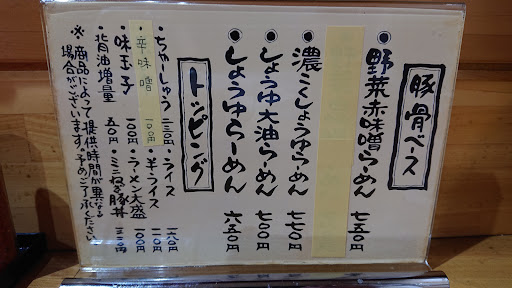 豚骨ベース
●野菜赤味噌らーめん 七五〇円
●濃くしょうゆらーめん 七七〇円
●しょうゆ大油らーめん 七〇〇円
●しょうゆらーめん 六五〇円
トッピング
・ちゃーしゅう 二三〇円
・辛味噌 一〇〇円
・味玉子 一〇〇円
・背油増量 五〇円
・ライス 一六〇円
・半ライス 一一〇円
・ラーメン大盛 一〇〇円
・ミニねぎ豚丼 三三〇円
※商品によって提供時間が異なる
場合がございます。予めご了承ください